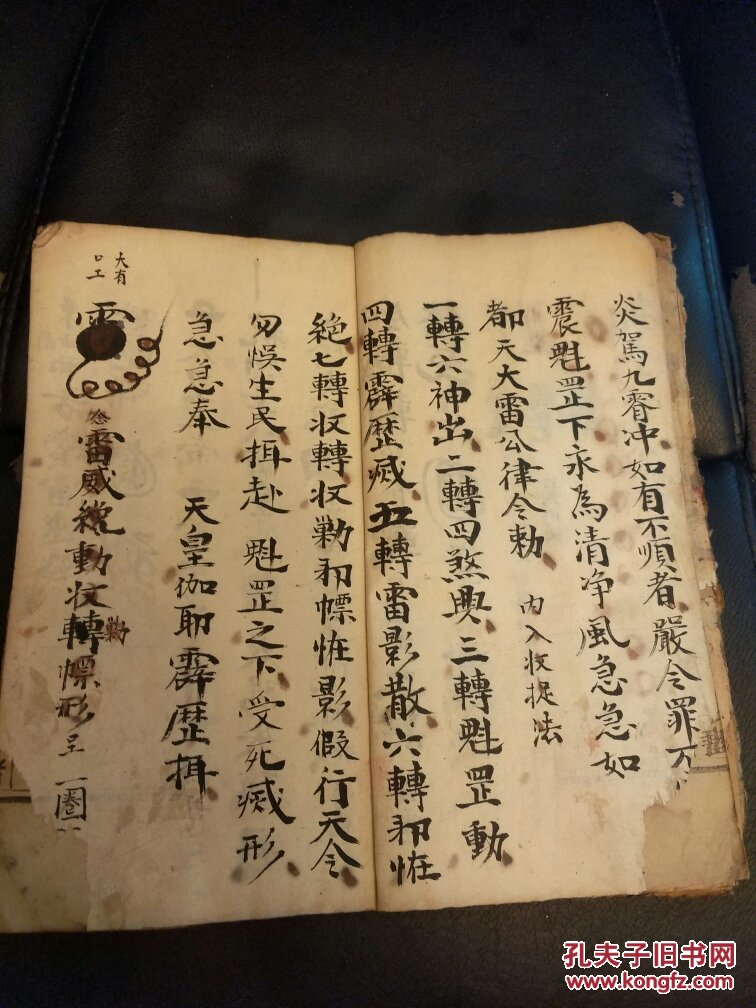 炎駕九霄冲如有不順者嚴令罪不
震魁罡下永為清净風急急如
都天大雷公律令勅
内入收捉法
一轉六神出二轉四煞興三轉魁罡動
四轉霹歷滅五轉雷影散六轉邪恠
絕七轉收轉收勦邪幖恠影假行天令
勿悮生民揖赴 魁罡之下受死滅形
急急奉 天皇伽耶霹歷揖
雷威統動收轉幖形呈一圈
勦
念
大有
口工
孔夫子旧书网
www.kongfz.com